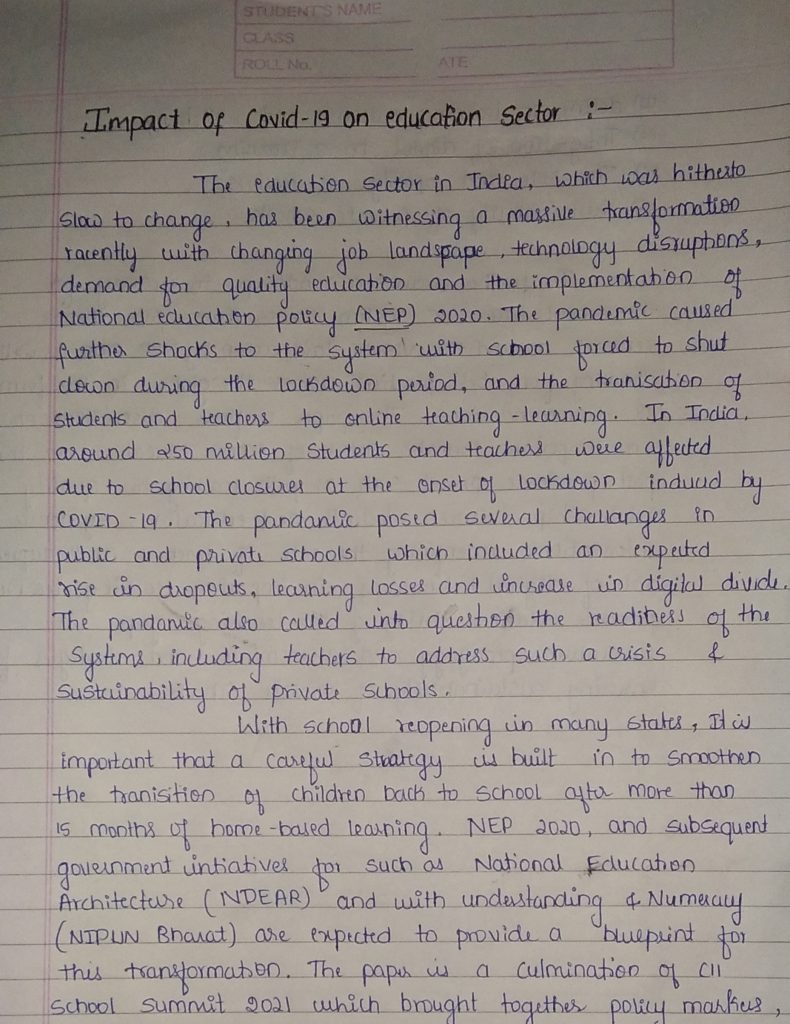 STUDENT'S NAME
CLASS
ROLL No. ATE
Impact of Covid-19 on education Sector :-
The education Sector in India, which was hitherto
Slow to change, has been witnessing a massive transformation
racently with changing job landspape, technology disruptions,
demand for quality education and the implementation of
National education policy (NEP) 2020. The pandemic caused
further Shocks to the system with school forced to shut
down during the lockdown period, and the tranisation of
Students and teachers to online teaching-learning. In India,
around 250 million Students and teachers were affected
due to school closures at the onset of lockdown induced by
COVID-19. The pandamic posed several challanges in
public and private schools which included an expected
rise in dropouts, learning losses and increase in digital divide.
The pandamic also called into question the readiness of the
Systems, including teachers to address such a crisis &
sustainability of private schools.
With school reopening in many states, It is
important that a careful strategy is built in to smoothen
the tranisition of children back to school after more than
15 months of home-based learning. NEP 2020, and subsequent
government intiatives for such as National Education
Architecture (NDEAR) and with understanding & Numeracy
(NIPUN Bharat) are expected to provide a blueprint for
this transformation. The paper is a culmination of CII
School Summit 2021 which brought together policy markers,